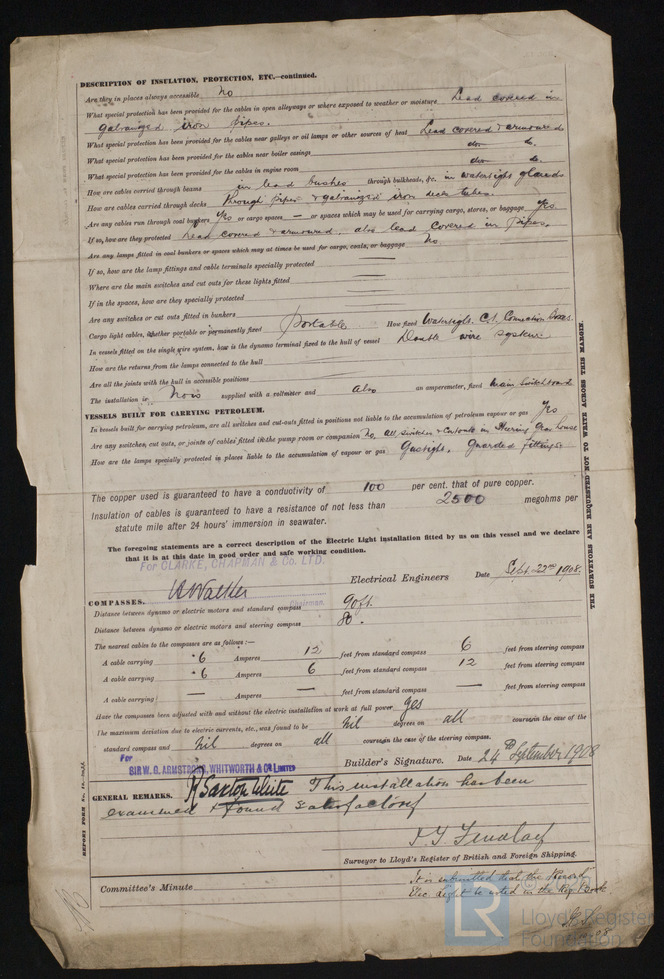 DESCRIPTION OF INSULATION, PROTECTION, ETC.—continued.
Are they in places always accessible No
What special protection has been provided for the cables in open alleyways or where exposed to weather or moisture Lead covered in
galvanized iron pipes.
What special protection has been provided for the cables near galleys or oil lamps or other sources of heat Lead covered & armoured
What special protection has been provided for the cables near boiler casings do do.
What special protection has been provided for the cables in engine room do do.
How are cables carried through beams in lead bushes through bulkheads, &c. in watertight glands
How are cables carried through decks through pipes & galvanized iron deck tubes.
Are any cables run through coal bunkers Yes or cargo spaces — or spaces which may be used for carrying cargo, stores, or baggage Yes
If so, how are they protected Lead covered & armoured, also lead covered in pipes.
Are any lamps fitted in coal bunkers or spaces which may at times be used for cargo, coals, or baggage No
If so, how are the lamp fittings and cable terminals specially protected
Where are the main switches and cut outs for these lights fitted
If in the spaces, how are they specially protected
Are any switches or cut outs fitted in bunkers
Cargo light cables, whether portable or permanently fixed portable How fixed Watertight C.I. Connection Boxes
In vessels fitted on the single wire system, how is the dynamo terminal fixed to the hull of vessel Double wire system
How are the returns from the lamps connected to the hull
Are all the joints with the hull in accessible positions
The installation is now supplied with a voltmeter and also an amperemeter, fixed main switchboard
VESSELS BUILT FOR CARRYING PETROLEUM.
In vessels built for carrying petroleum, are all switches and cut-outs fitted in positions not liable to the accumulation of petroleum vapour or gas Yes
Are any switches, cut outs, or joints of cables fitted in the pump room or companion No, all switches & cutouts in Steering Gear house
How are the lamps specially protected in places liable to the accumulation of vapour or gas Gastight, Guarded fittings
The copper used is guaranteed to have a conductivity of 100 per cent. that of pure copper.
Insulation of cables is guaranteed to have a resistance of not less than 2500 megohms per
statute mile after 24 hours' immersion in seawater.
The foregoing statements are a correct description of the Electric Light installation fitted by us on this vessel and we declare
that it is at this date in good order and safe working condition.
For CLARKE, CHAPMAN & Co. LTD.
Walker Chairman. Electrical Engineers Date Sept. 22nd 1908.
COMPASSES.
Distance between dynamo or electric motors and standard compass 90ft.
Distance between dynamo or electric motors and steering compass 80.
The nearest cables to the compasses are as follows:—
A cable carrying .6 Amperes 12 feet from standard compass 6 feet from steering compass
A cable carrying .6 Amperes 6 feet from standard compass 12 feet from steering compass
A cable carrying — Amperes — feet from standard compass — feet from steering compass
Have the compasses been adjusted with and without the electric installation at work at full power yes
The maximum deviation due to electric currents, etc., was found to be nil degrees on all courses in the case of the
standard compass and nil degrees on all courses in the case of the steering compass.
For
SIR W. G. ARMSTRONG, WHITWORTH & Co LIMITED Builder's Signature. Date 24th September 1908
Saxton White
GENERAL REMARKS. This installation has been
examined & found satisfactory
Surveyor to Lloyd's Register of British and Foreign Shipping.
Committee's Minute
It is submitted that the Record
Elec. Light be noted in the Reg. Book
REPORT FORM No.
THE SURVEYORS ARE REQUESTED NOT TO WRITE ACROSS THIS MARGIN.
LR
Lloyd's Register
Foundation